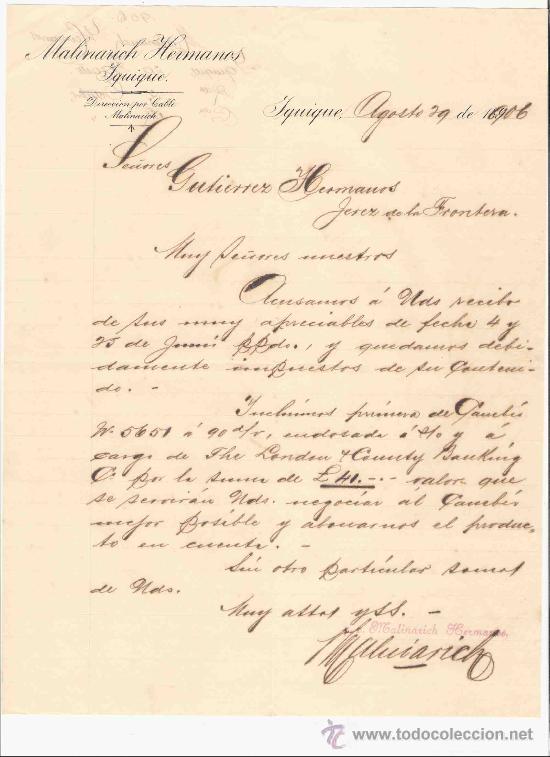 Malinarich Hermanos
Iquique.
Direccion por Cable
Malinarich
Iquique, Agosto 29 de 1906
Señores
Gutierrez Hermanos
Jerez de la Frontera.
Muy Señores nuestros
Acusamos á Uds recibo
de sus muy apreciables de fecha 4 y
25 de Junio ppdo., y quedamos debi-
damente impuestos de su Conteni-
do. -
Incluimos primera de Cambio
Nº 5651 á 90 d/v, endosada á s/o y á
cargo de The London & County Banking
Cº por la suma de £ 41.-.- valor que
se serviran Uds. negociar al Cambio
mejor posible y abonarnos el produc-
to en cuenta. -
Sin otro particular somos
de Uds.
Muy attos y SS. -
Malinarich Hermanos,
Malinarich
todocoleccion
www.todocoleccion.net